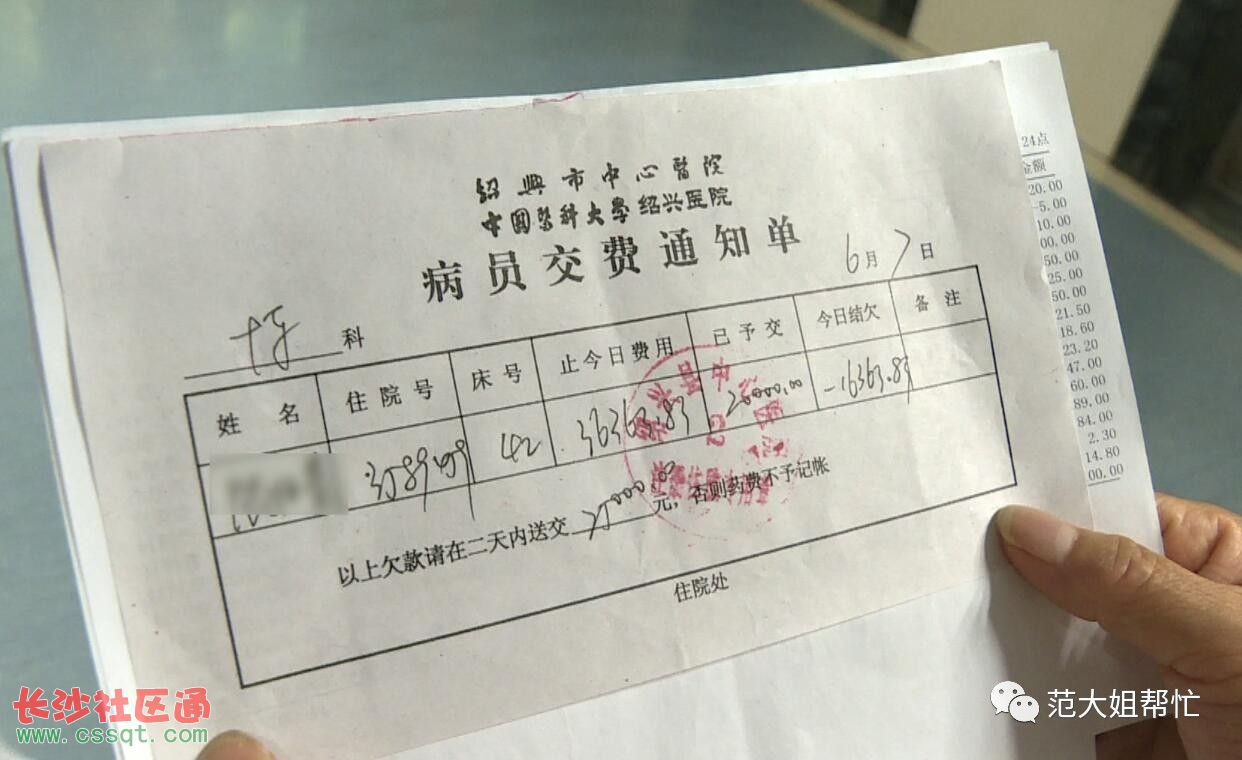 紹興市中心醫院
中国医科大学绍兴医院
病员交费通知单
6月7日
科
姓名 住院号 床号 止今日费用 已予交 今日结欠 备注
42 36363.83 20000.00 -16363.83
以上欠款请在二天内送交 25000.00 元，否则药费不予记帐
住院处
24点
金额
20.00
-5.00
10.00
00.00
50.00
25.00
50.00
21.50
18.60
23.20
47.00
60.00
89.00
84.00
2.30
14.80
00.00
长沙社区通
www.cssqt.com
范大姐帮忙